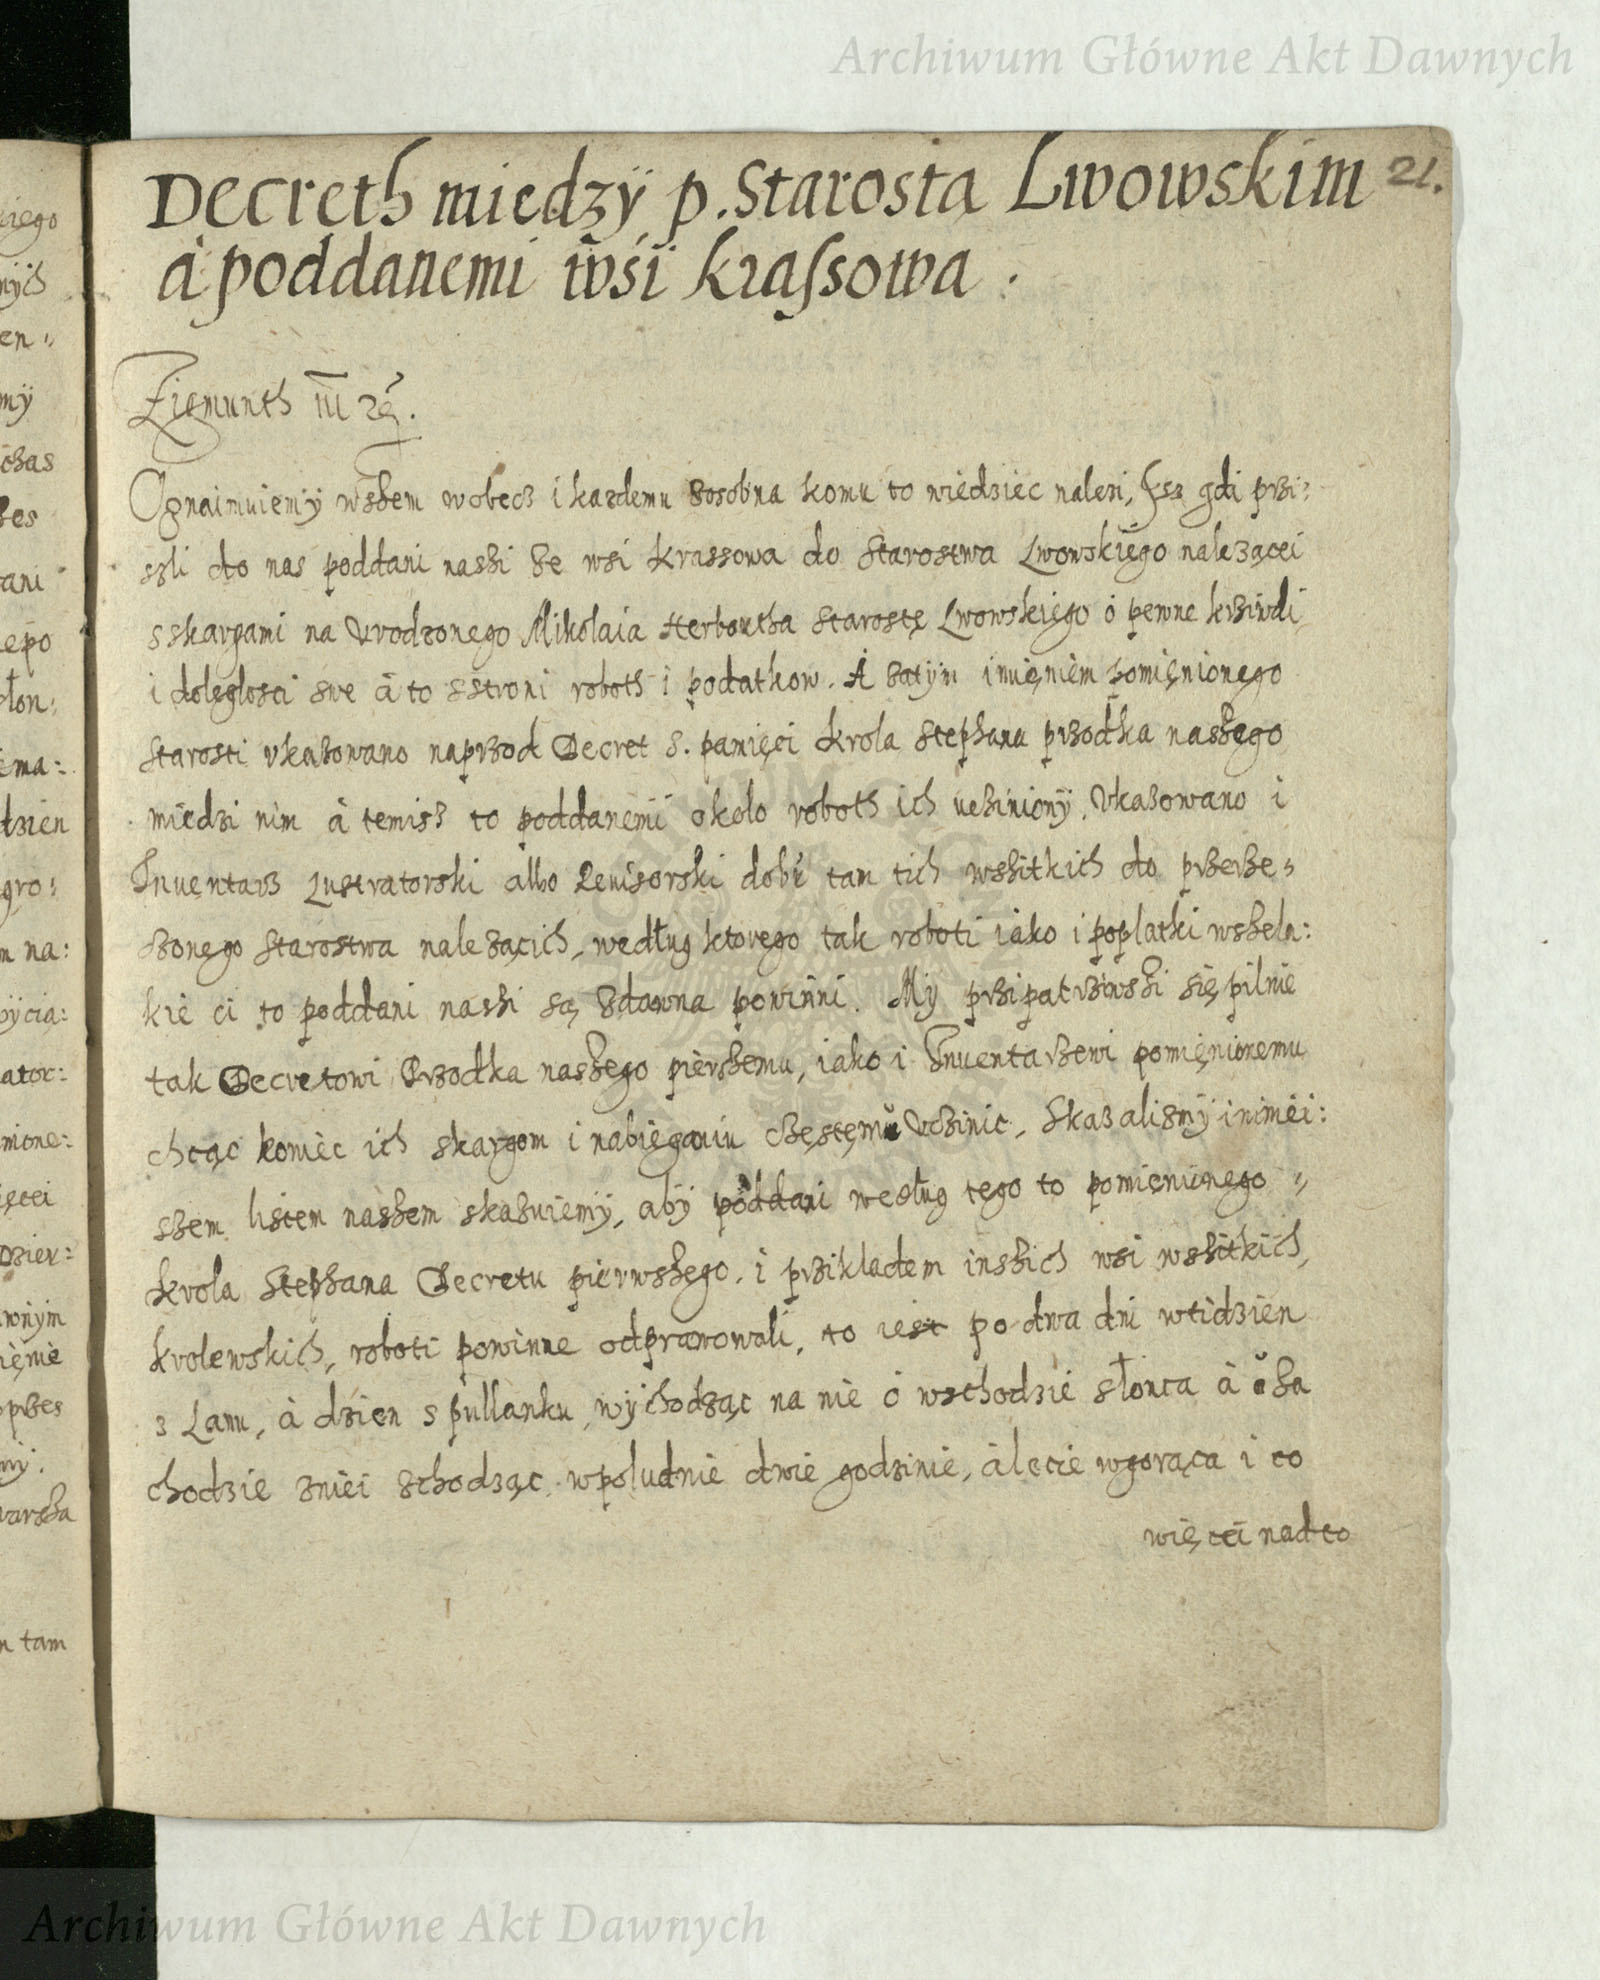 Archiwum Główne Akt Dawnych
21.
Decreth miedzÿ p. Starostą Lwowskim
à poddanemi wśi krassowa.
Zigmunth III
Oznaimuiemÿ wszem wobecz i kazdemu zosobna komu to wiedziec nalezi, Isz gdi przi:
szli do nas poddani naszi ze wsi Krassowa do Starostwa Lwowskiego nalezącei
s skargami na Urodzonego Mikolaia Herbortha Starostę Lwowskiego o pewne krziwdi
i doleglosci swe à to s stroni roboth i podatkow. A zatÿm imięniem pomięnionego
Starosti ukazowano naprzod Decret s. pamięci Krola Stephana przodka naszego
miedzi nim à temisz to poddanemi okolo roboth ich uczinionÿ. Ukazowano i
Inuentarz Lustratorski albo Revisorski dobr tam tich wszitkich do przerze„
zonego Starostwa nalezącich, według ktorego tak roboti iako i poplatki wszela:
kie ci to poddani naszi są zdawna powinni. Mÿ przipatrziwszi się pilnie
tak Decretowi Przodka naszego pierszemu, iako i Inuentarzewi pomięnionemu
chcąc koniec ich skargom i nabieganiu częstemu uczinic, Skazalismÿ i nimiei:
szem listem naszem skazuiemÿ, abÿ poddani według tego to pomięnionego „
Krola Stephana Decretu pierwszego. i przikladem inszich wsi wszitkich,
Krolewskich, roboti powinne odprawowali, to iest po dwa dni wtidzien
z Lanu, à dzien s pullanku, wÿchodząc na nie o wschodzie słonca à o za
chodzie zniei schodząc. wpoludnie dwie godzinie, à lecie wgorąca i co
więcei nadto
Archiwum Główne Akt Dawnych